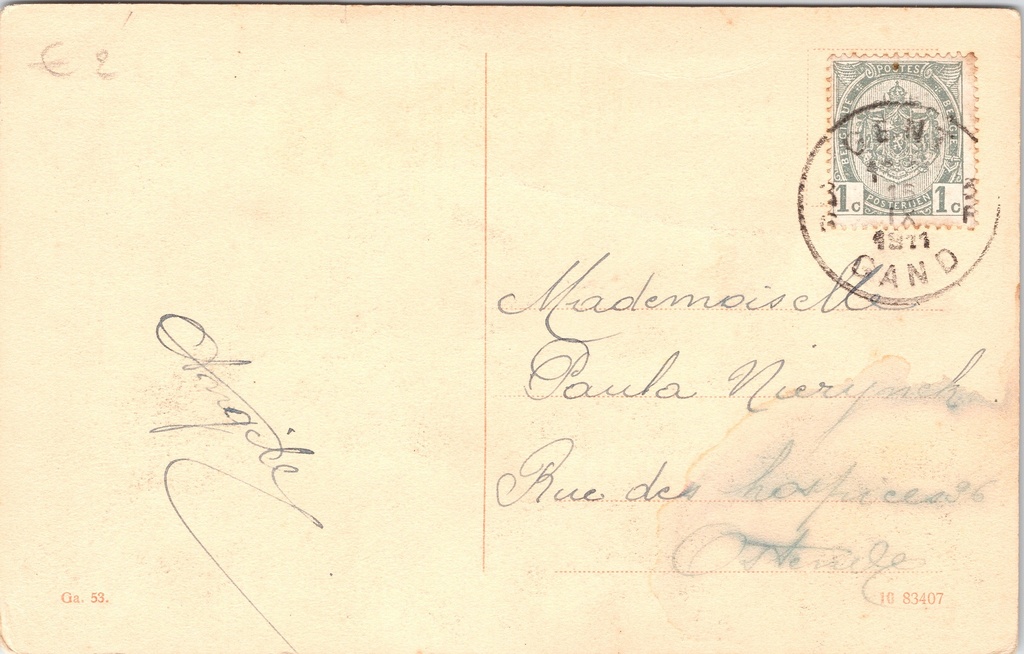 € 2
POSTES
BELGIQUE
1c POSTERIJEN 1c
GENT
1911
GAND
Mademoiselle
Paula Nierynck
Rue des hospices 36
Ostende
Angèle
Ga. 53.
10 83407